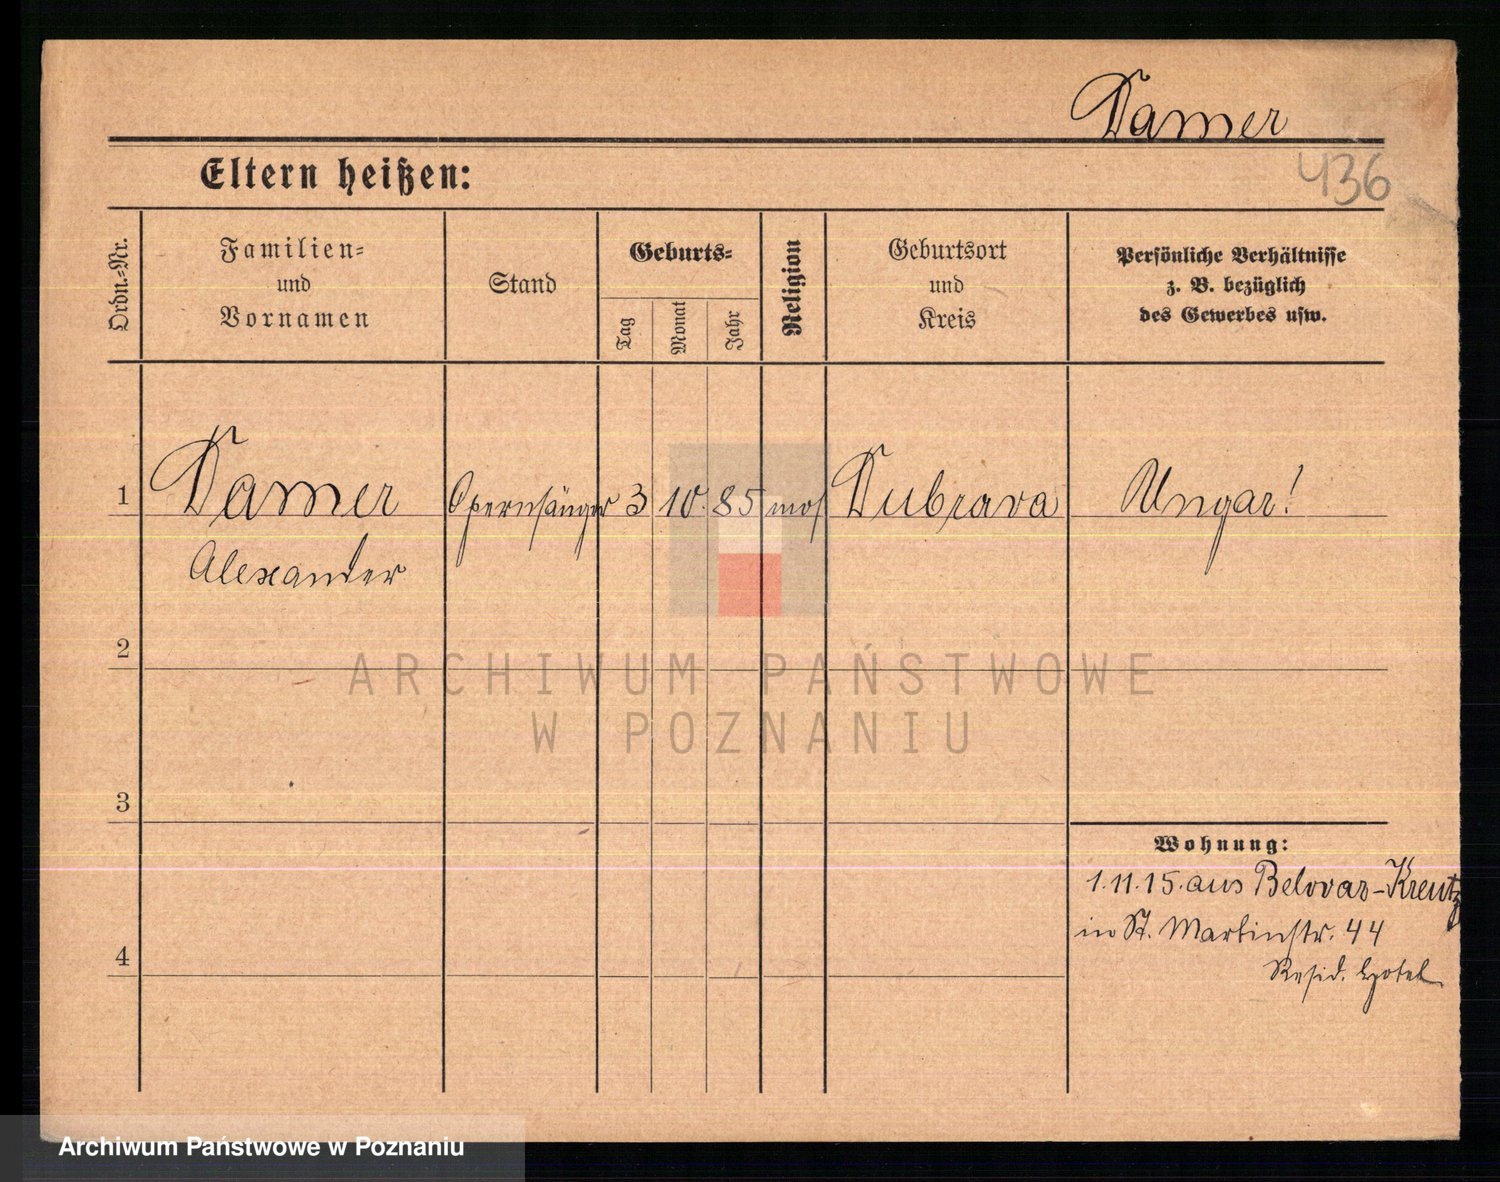 Damer
436
Eltern heißen:
Ordn.-Nr.
Familien-
und
Vornamen
Stand
Geburts-
Tag
Monat
Jahr
Religion
Geburtsort
und
Kreis
Persönliche Verhältnisse
z. B. bezüglich
des Gewerbes usw.
1 Damer Opernsänger 3 10. 85 mos Dubrava Ungar!
Alexander
2
ARCHIWUM PAŃSTWOWE
W POZNANIU
3
Wohnung:
1.11.15. aus Belovar-Kreutz
in St. Martinstr. 44
4
Resid. Hotel
Archiwum Państwowe w Poznaniu